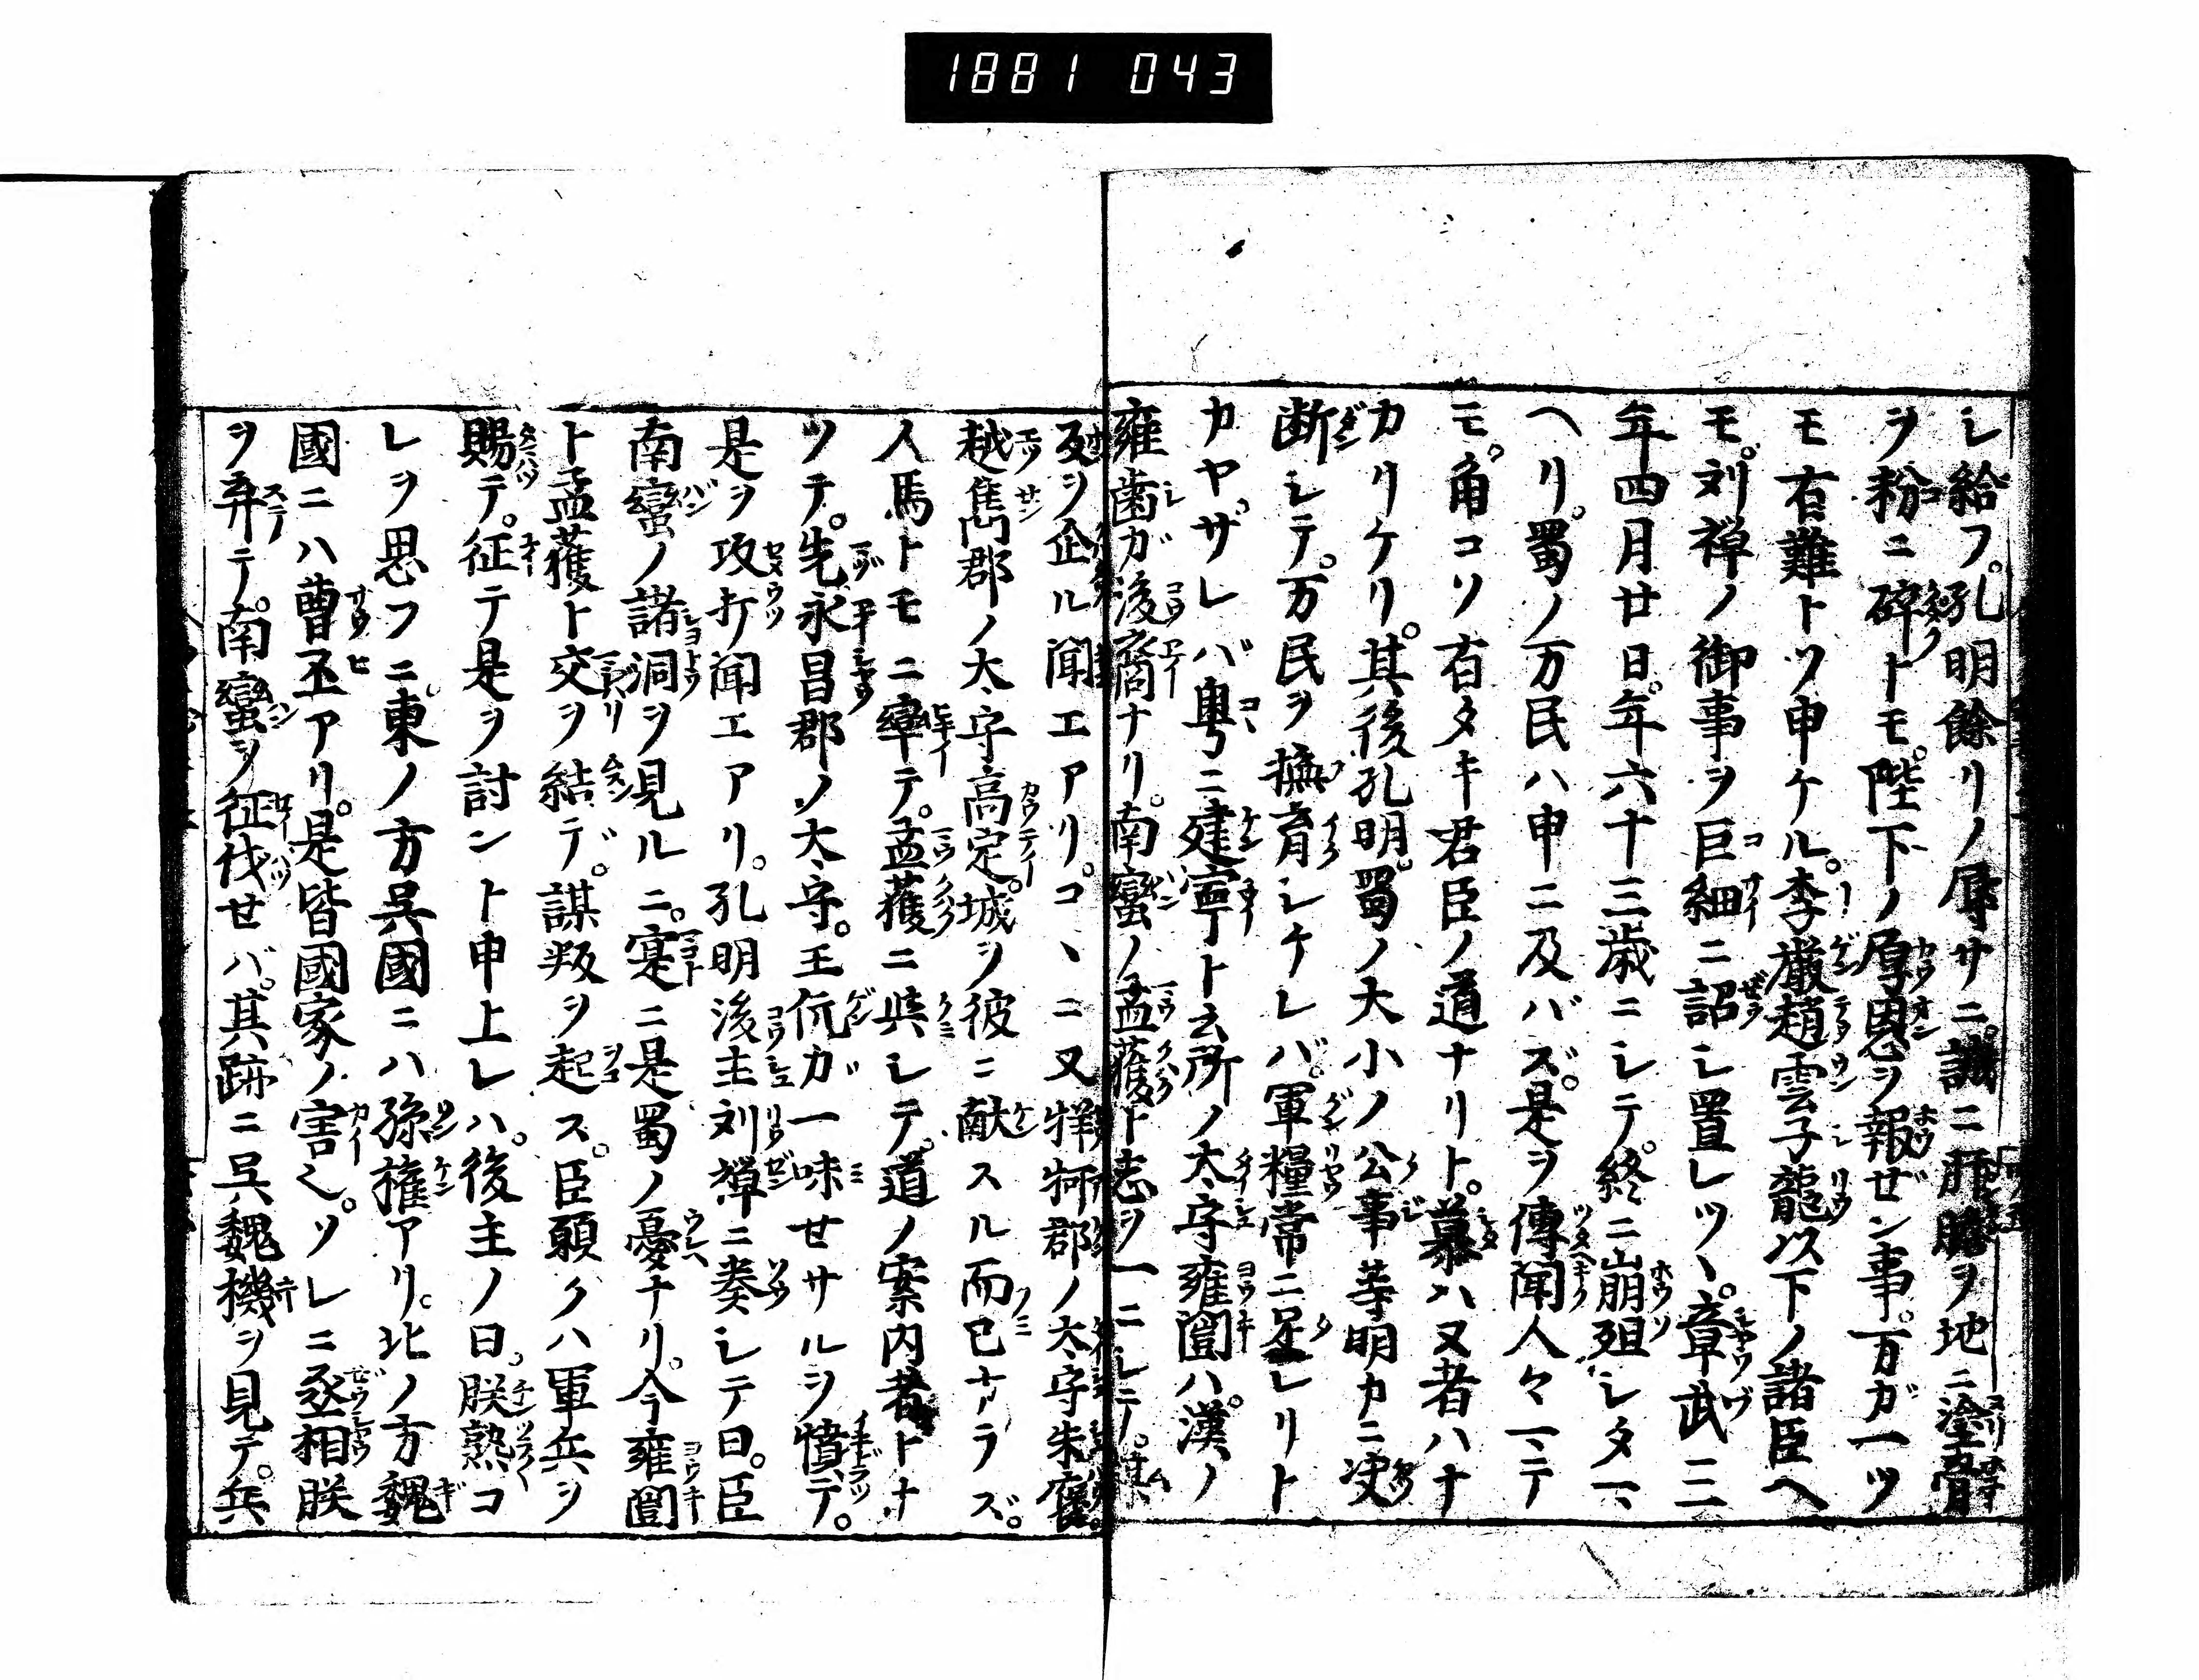 1881 043
シ給フ。孔明餘リノ辱サニ。誠ニ肝膽ヲ地ニ塗骨
ヲ粉ニ碎トモ。陛下ノ厚恩ヲ報ゼン事。万ガ一ツ
モ有難トソ申ケル。李嚴趙雲子龍以下ノ諸臣ヘ
モ。刘禅ノ御事ヲ巨細ニ詔シ置レツヽ。章武三
年四月廿日。年六十三歳ニシテ。終ニ崩殂シタマ
ヘリ。蜀ノ万民ハ申ニ及バズ。是ヲ傳聞人々マテ
モ。角コソ有タキ君臣ノ道ナリト。慕ハヌ者ハナ
カリケリ。其後孔明。蜀ノ大小ノ公事等明カニ决
断シテ。万民ヲ撫育シケレバ。軍糧常ニ足レリト
カヤ。ザレバ粤ニ建寧ト云所ノ太守雍闓ハ。漢ノ
雍歯ガ後裔ナリ。南蠻ノ孟獲ト志ヲ一ニシテ。
ヲ企ル聞エアリ。コヽニ又牂牁郡ノ太守朱褒。
越雋郡ノ太守高定。城ヲ彼ニ献スル而已ナラズ。
人馬トモニ率テ。孟獲ニ與シテ。道ノ案内者トナ
ツテ。先永昌郡ノ太守。王伉ガ一味セサルヲ憤テ。
是ヲ攻打聞エアリ。孔明後主刘禅ニ奏シテ曰。臣
南蠻ノ諸洞ヲ見ルニ。寔ニ是蜀ノ憂ナリ。今雍闓
ト孟獲ト交ヲ結デ。謀叛ヲ起ス。臣願クハ軍兵ヲ
賜テ。征テ是ヲ討ント申上レハ。後主ノ曰。朕熟コ
レヲ思フニ。東ノ方呉國ニハ孫權アリ。北ノ方魏
國ニハ曹丕アリ。是皆國家ノ害也。ソレニ丞相朕
ヲ弃テ。南蠻ヲ征伐セバ。其跡ニ呉魏機ヲ見テ。兵